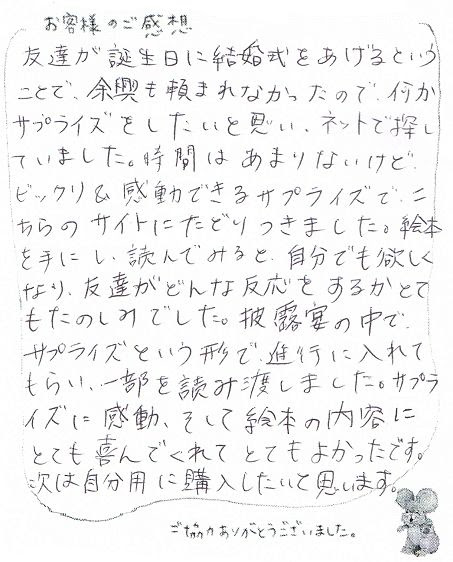 お客様のご感想
友達が誕生日に結婚式をあげるという
ことで、余興も頼まれなかったので、何か
サプライズをしたいと思い、ネットで探し
ていました。時間はあまりないけど、
ビックリ&感動できるサプライズで、こ
ちらのサイトにたどりつきました。絵本
を手にし、読んでみると、自分でも欲しく
なり、友達がどんな反応をするかとて
もたのしみでした。披露宴の中で、
サプライズという形で、進行に入れて
もらい、一部を読み渡しました。サプラ
イズに感動、そして絵本の内容に
とても喜んでくれてとてもよかったです。
次は自分用に購入したいと思います。
ご協力ありがとうございました。